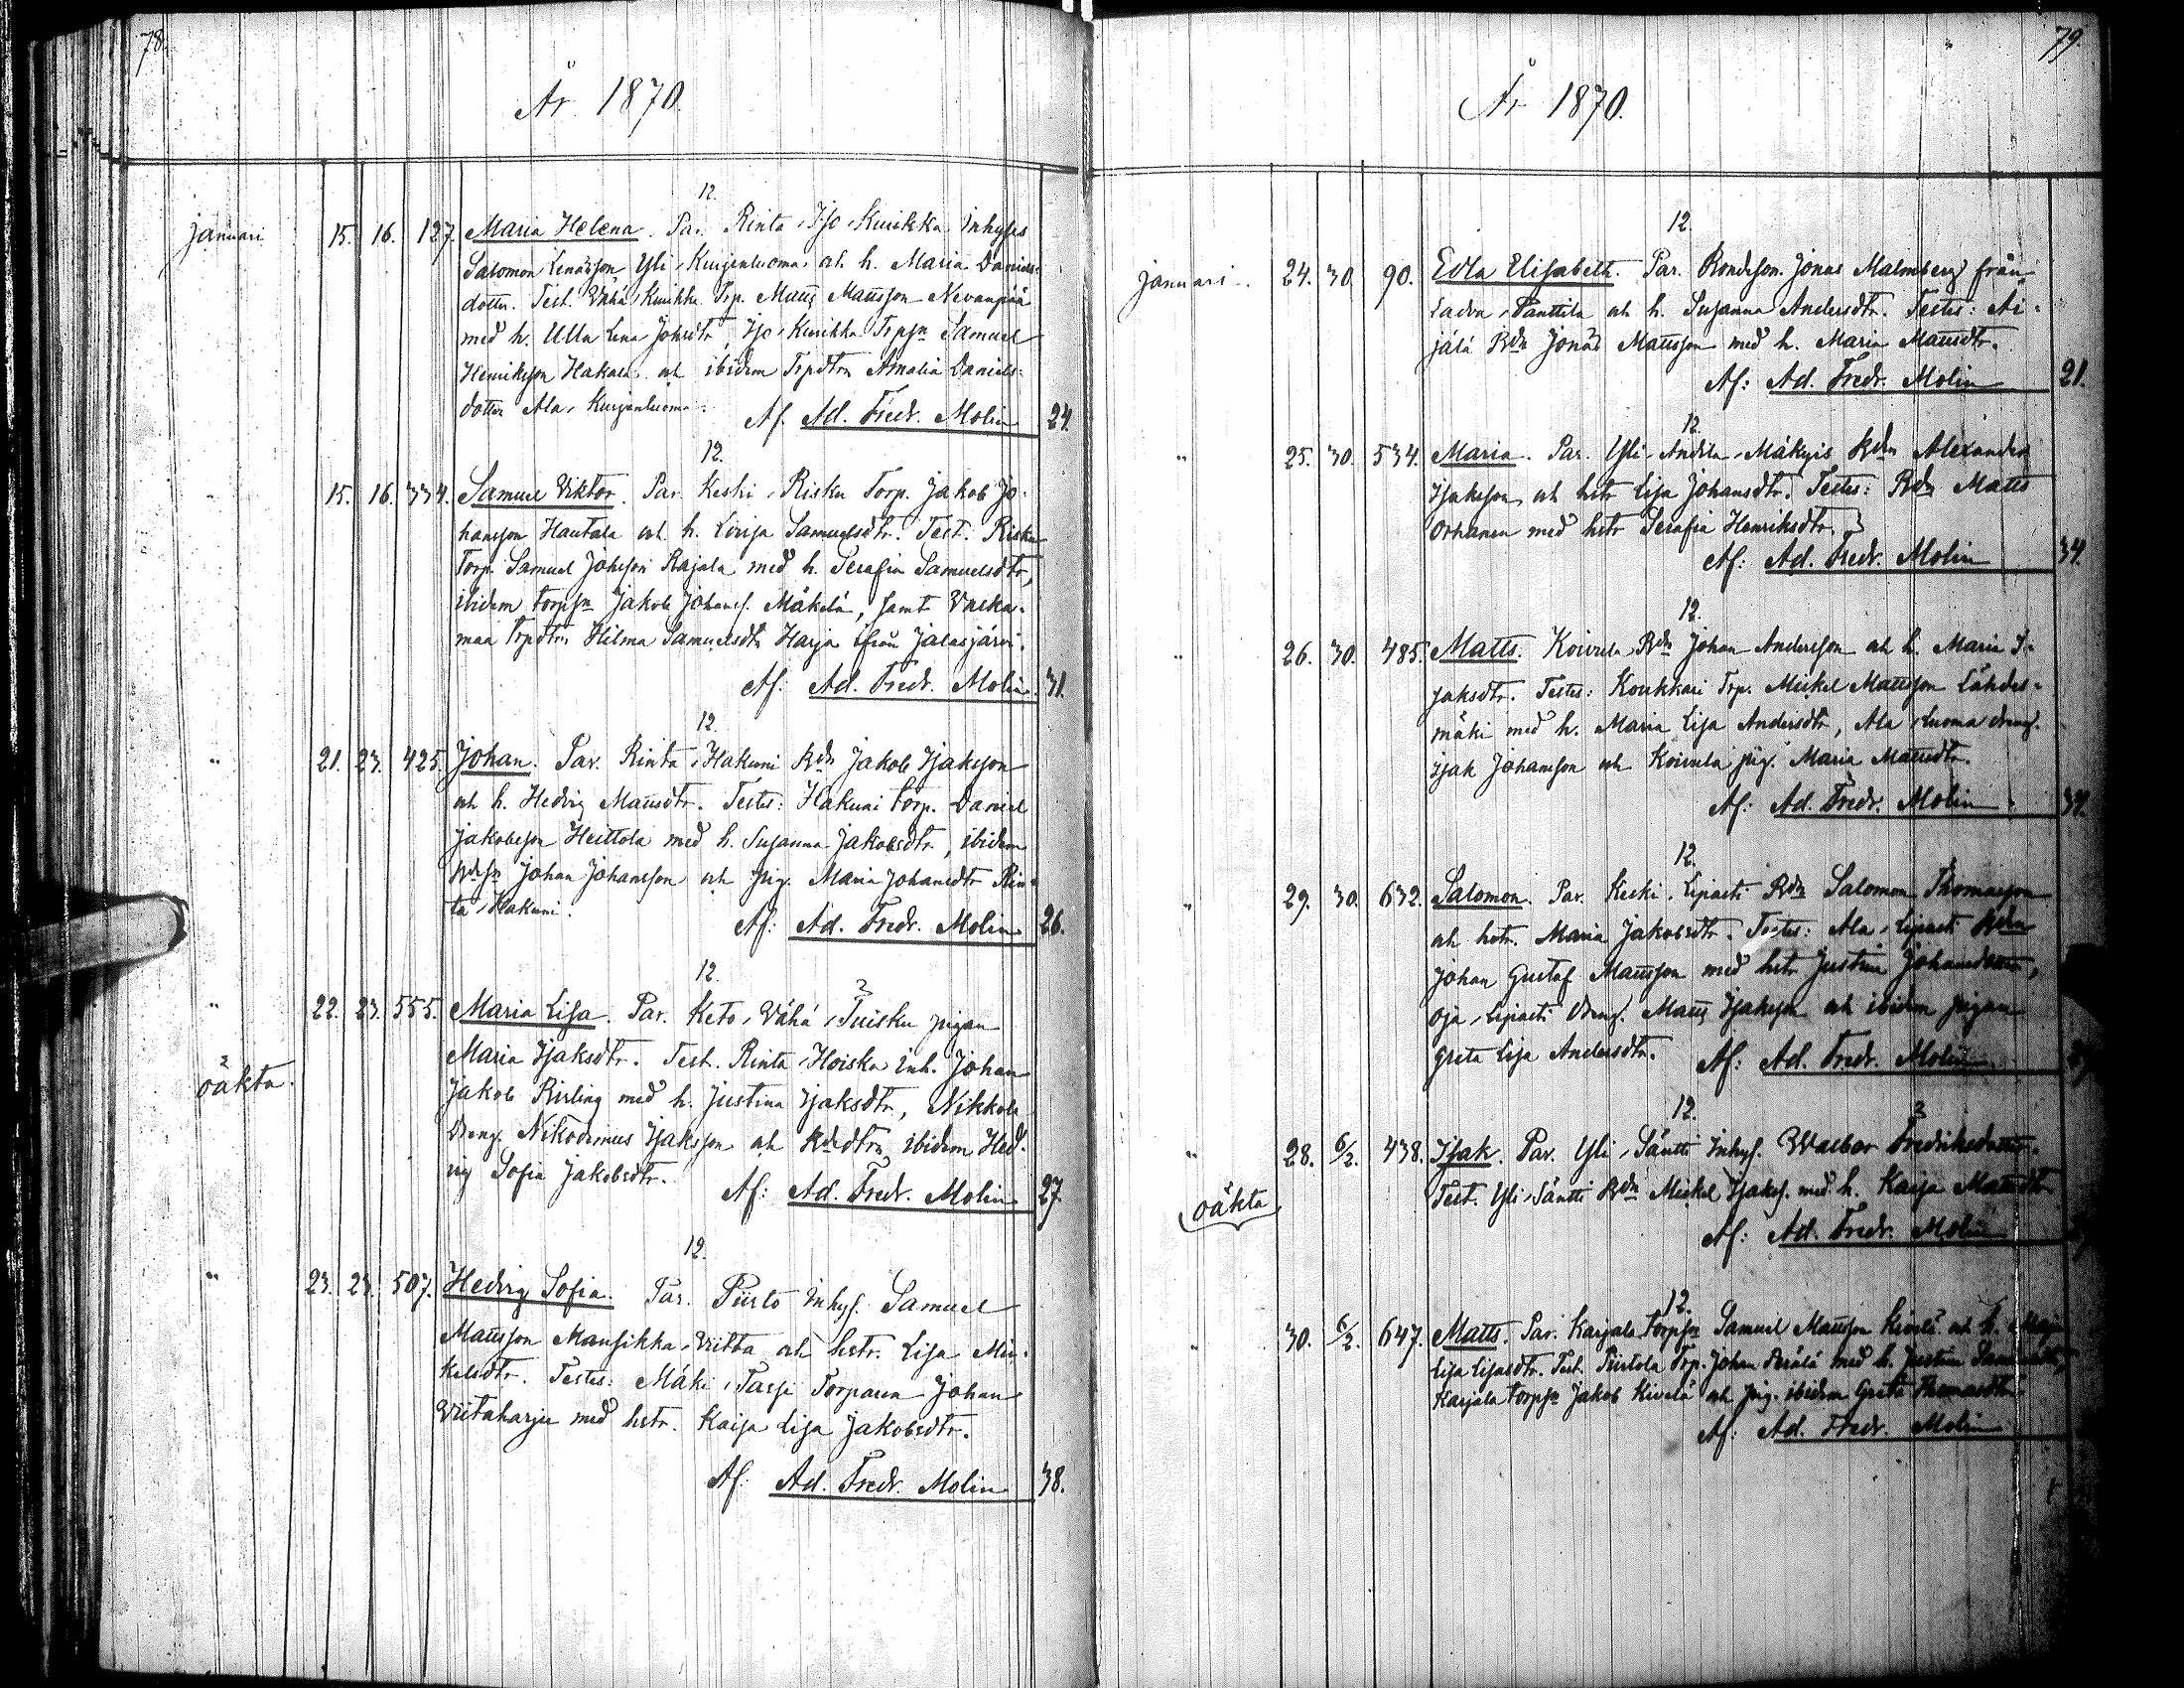 78.
År 1870.
12.
Januari 15. 16. 127. Maria Helena. Par. Rinta, Iso, Kurikka Inhyses
Salomon Yli, Kurjenluoma och h. Maria Daniels-
dotter. Test. Vähä, Kurikka Trp. Matts Mattsson Nevanpää
med h. Ulla Lena Johsdtr, Iso, Kurikka Trpsn Samuel
Henriksson Hakala och ibidem Trpdtrn Amalia Daniels-
dotter Ala, Kurjenluoma.
Af. Ad. Fredr. Molin 24.
12.
15. 16. 334. Samuel Viktor. Par. Keski, Risku Torp. Jakob Jo-
hansson Hautala och h. Lovisa Samuelsdtr. Test. Risku
Torp. Samuel Johsson Rajala med h. Serafia Samuelsdtr,
ibidem torpsn Jakob Johanss. Mäkelä, samt
maa trpdtrn Hilma Samuelsdtr Harja ifrån Jalasjärvi.
Af. Ad. Fredr. Molin. 31.
12.
" 21. 23. 425. Johan. Par. Rinta, Hakuni Bdn Jakob Isaksson
och h. Hedvig Mattsdtr. Testes: Hakuni torp. Daniel
Jakobsson Heittola med h. Susanna Jakobsdtr, ibidem
Bdesn Johan Johansson och pig. Maria Johansdtr Rin-
ta, Hakuni.
Af: Ad. Fredr. Molin 26.
12.
" 22. 23. 555. Maria Lisa. Par. Keto, Vähä, Tuisku pigan
oäkta. Maria Isaksdtr. Test. Rinta, Hoiska Inh. Johan
Jakob med h. Justina Isaksdtr, Nikkola
Dreng. Nikodemus Isaksson och Bdedtrn ibidem Hed-
vig Sofia Jakobsdtr.
Af: Ad. Fredr. Molin 27.
12.
" 23. 23. 507. Hedvig Sofia. Par. Piirto Inhys. Samuel
Mattsson Mansikka, Viitta och hstr. Lisa Mic-
kelsdtr. Testes: Mäki, Torparen Johan
Viitaharju med hstr. Kaisa Lisa Jakobsdtr.
Af. Ad. Fredr. Molin 38.
79.
År 1870.
12.
Januari. 24. 30. 90. Edla Elisabeth. Par. Bondeson. Jonas Malmberg från
Panttila och h. Susanna Andersdtr. Testes: Äi-
jälä Bdn Jonas Mattsson med h. Maria Mattsdtr.
Af: Ad. Fredr. Molin 21.
12.
" 25. 30. 534. Maria. Par. Yli, Andila, Bdn Alexander
Isaksson och hstr Lisa Johansdtr. Testes: Bdn Matts
med hstr Serafia Henriksdtr.
Af: Ad. Fredr. Molin 34.
12.
" 26. 30. 485. Matts. Koivula Bdn Johan Andersson och h. Maria I-
saksdtr. Testes: Koukkari Trp. Mickel Mattsson Lähdes-
mäki med h. Maria Lisa Andersdtr, Ala, Luoma dreng.
Isak Johansson och Koivula pig. Maria Mattsdtr.
Af: Ad. Fredr. Molin. 34.
12.
" 29. 30. 632. Salomon. Par. Keski, Lipasti Bdn Salomon Thomasson
och hstr. Maria Jakobsdtr. Testes: Ala, Lipasti Bdn
Johan Gustaf Mattsson med hstr Justina Johansdotter,
Oja, Lipasti Dreng. Matts Isaksson och ibidem pigan
Greta Lisa Andersdtr.
Af: Ad. Fredr. Molin.
12.
" 28. 6/2. 438. Isak. Par. Yli, Säntti Inhys. Walbor Fredriksdotter.
oäkta Test. Yli, Säntti Bdn Mickel Isakss. med h. Kaisa Mattsdtr
Af: Ad. Fredr. Molin
12.
" 30. 6/2. 647. Matts. Par. Karjala torpsn Samuel Mattsson Kivelä och h. Maja
Lisa Lisasdtr. Test. Piirtola Trp. Johan Perälä med h. Justina
Karjala torpsn Jakob Kivelä och pig. ibidem Greta Thomasdtr.
Af: Ad. Fredr. Molin